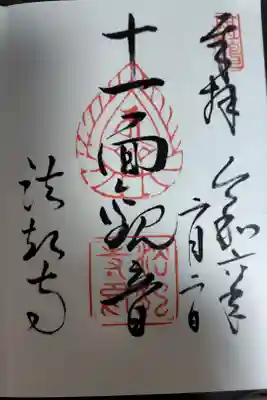 奉拝
令和六年
六月二日
十一面観音
法起寺